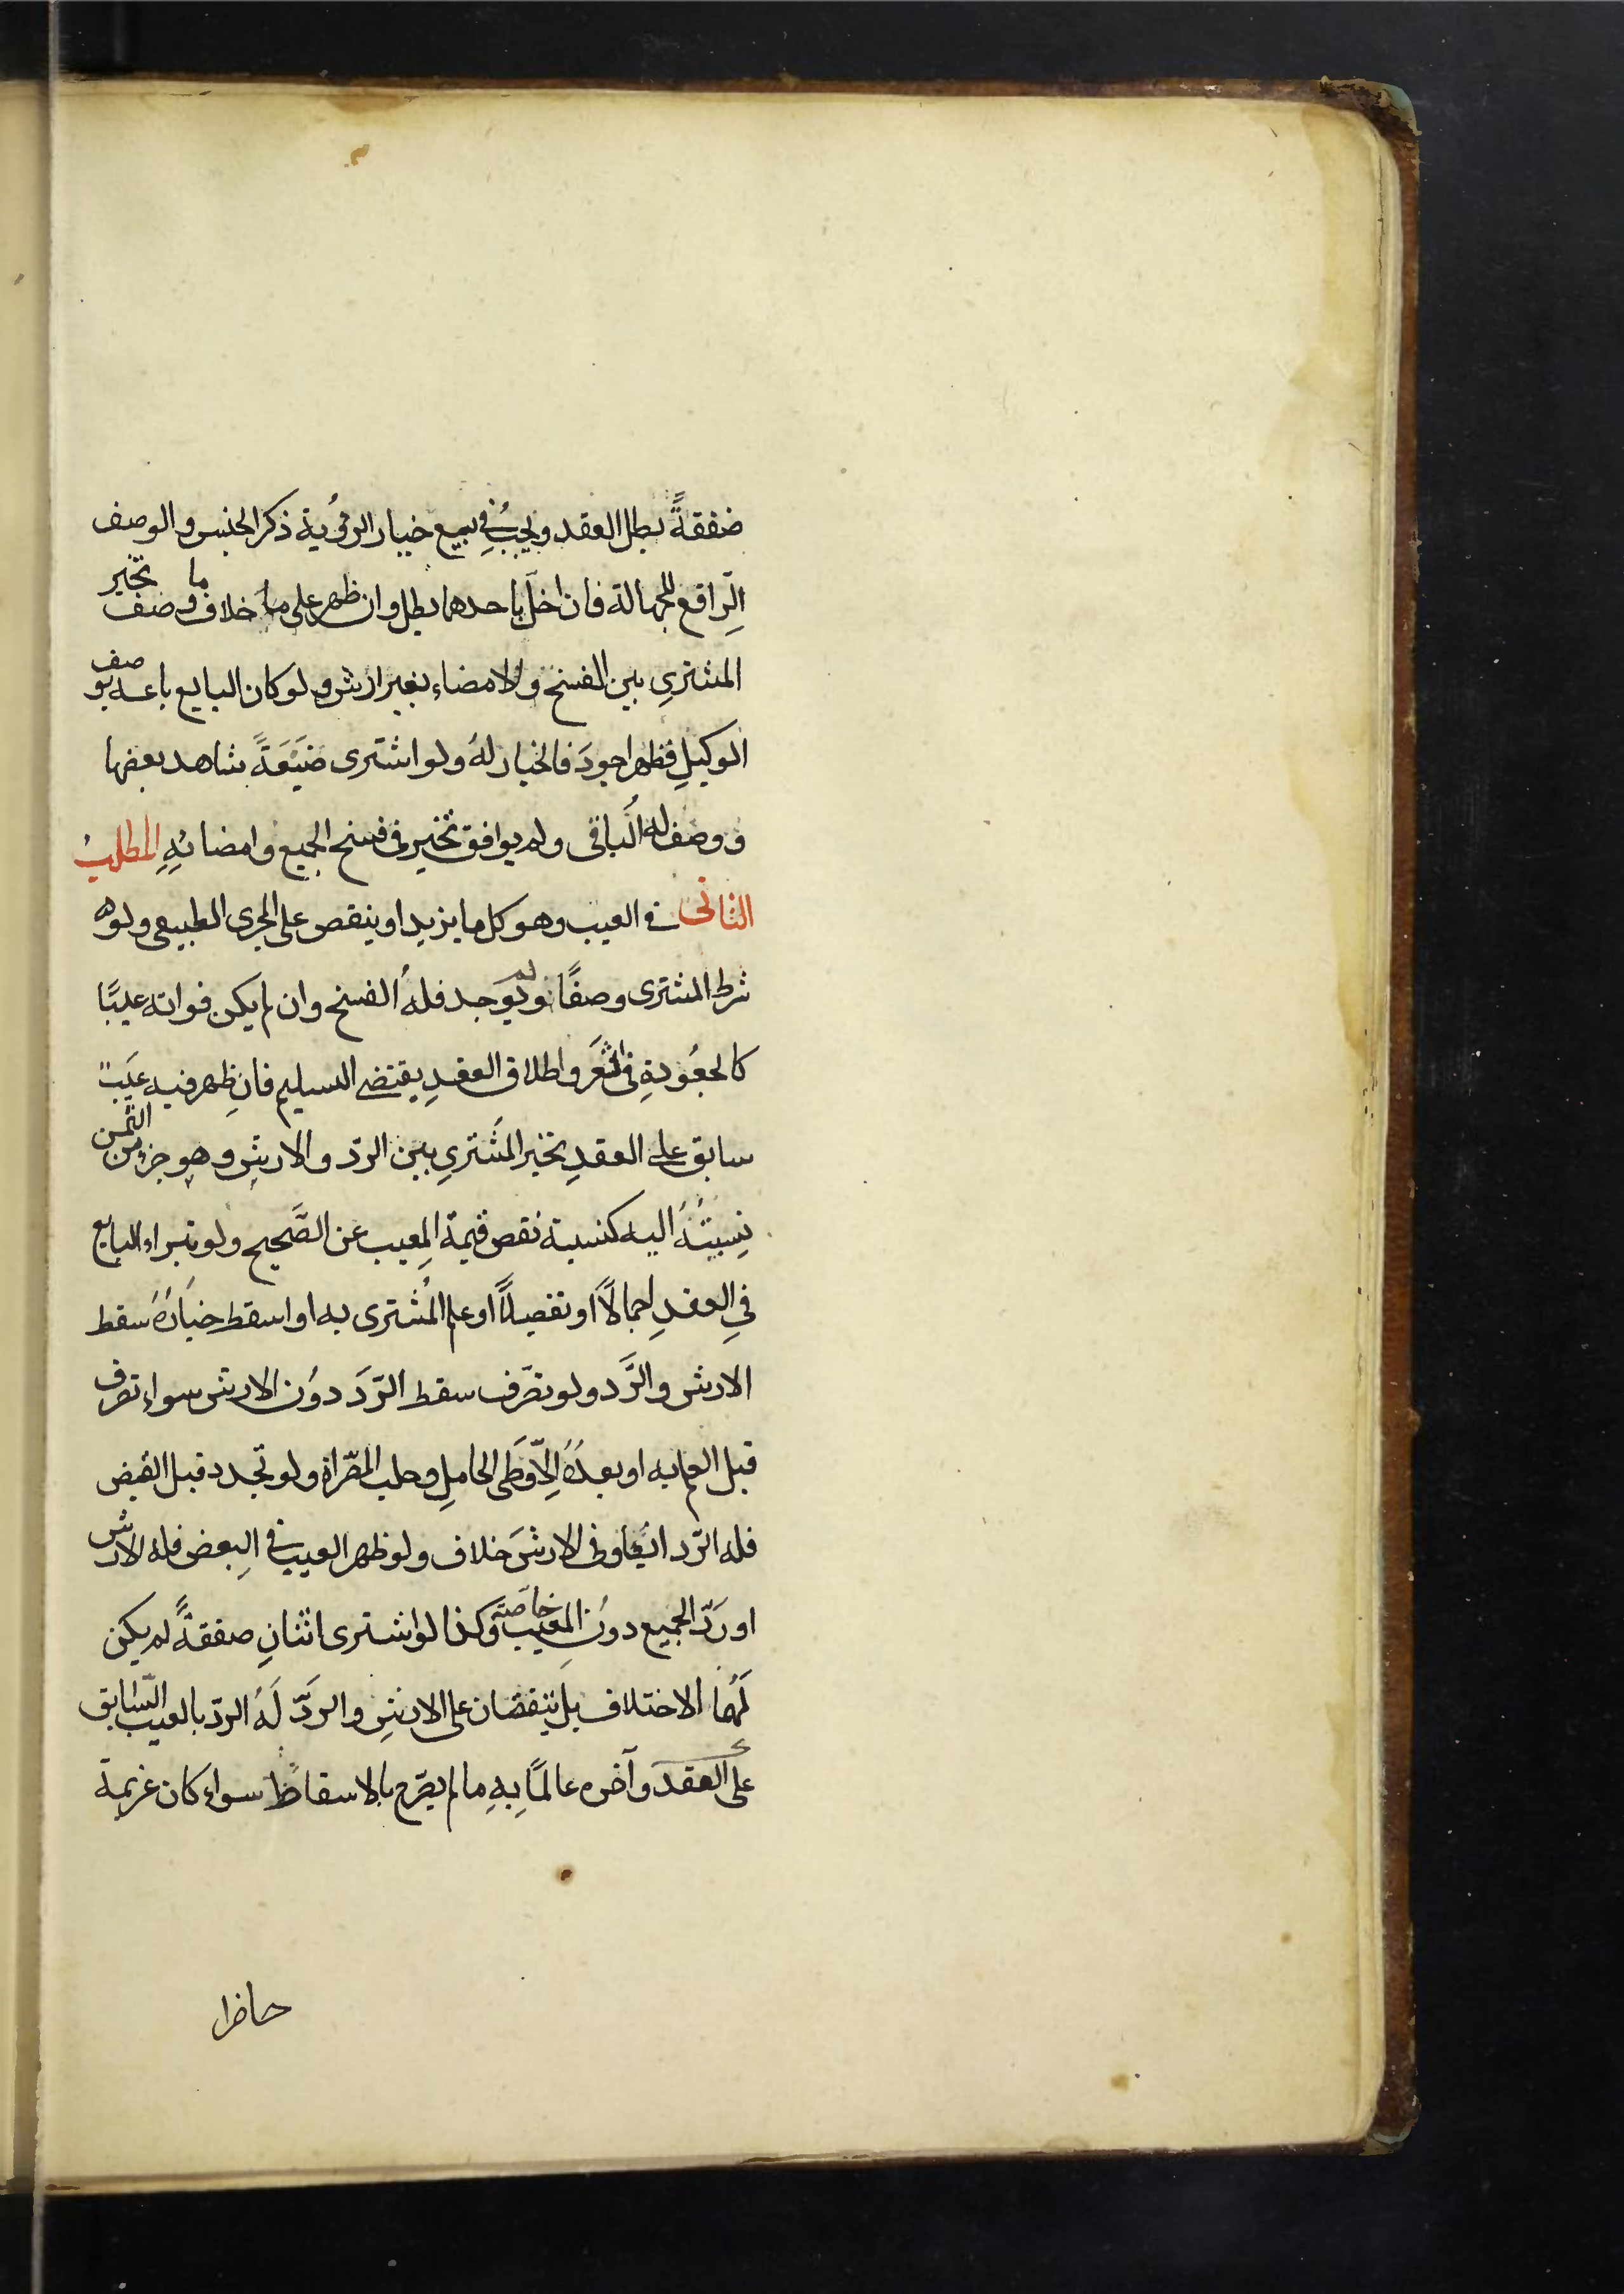 ضفقةً بطل العقد ويجبُ في بيع خيار الرؤُية ذكر الجنس والوصف
الرافع للجهالة فان اخلّ باحدهما بطل وان ظهر على خلاف ما وصف تخير
المشترىِ بين الفسخ والامضاء بغير ارش ولو كان البايع باعه بوصف
الوكيلِ فظهر اجودَ فالخيار لهُ ولو اشترى ضَيْعَةً شاهد بعضها
ووصف له الباقى ولم يوافق تخير فى فسخ الجميع وامضائهِ المطلبُ
الثانى فى العيب وهو كل ما يزيد او ينقص على المجرى الطبيعى ولو
شرط المشترى وصفًا ولم يوَجد فلهُ الفسخ وان لم يكن فواته عيبًا
كالجعُودةِ فى الشعَر واطلاق العقدِ يقتضى السليم فانِ ظهر فيه عيَبٌ
سابق على العقدِ تخير المشَترىِ بين الردّ والارشِ وهو جزء من الثمن
نِسبتُهُ اليه كنسبة نقص قيمة المعِيب عن الصَّحيح ولو تبراء البايع
فىِ العقدِ اجمالاً او تفصيلاً او علم المُشترى به او اسقط خيَارهُ سقط
الارش والرَّد ولو تصّرف سقط الرّدَ دوُن الارش سواء تصرف
قبل العلم به او بعدَهُ الِاّ وَطى الحاملِ وحلب المصّراة ولو تجدد قبل القبض
فله الرّد ايضًا وفى الارشَ خلاف ولو ظهر العيب فى البِعض فله الارش
او رَدّ الجميع دوُن المعيب خاصّة وكذا لو اشترى اثنانِ صفقةً لم يكن
لَهُما الاختلاف بل يتفقان على الارشِ والرَدّ لَهُ الردّ بالعيب السّابق
على العقدَ وآخره عالمًا بهِ ما لم يصّرح بالاسقاط سواء كان غريمة
حاضرا